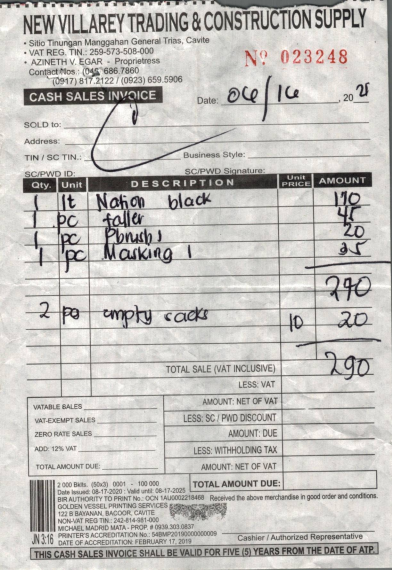 NEW VILLAREY TRADING & CONSTRUCTION SUPPLY
• Sitio Tinungan Manggahan General Trias, Cavite
• VAT REG. TIN.: 259-573-508-000
• AZINETH V. EGAR - Proprietress
Contact Nos.: (046) 686.7860
(0917) 817.2122 / (0923) 659.5906
Nº 023248
CASH SALES INVOICE
Date: 06/16, 2021
SOLD to:
Address:
TIN / SC TIN.: Business Style:
SC/PWD ID: SC/PWD Signature:
Qty. Unit DESCRIPTION Unit PRICE AMOUNT
1 lt Nation black 170
1 pc taller 45
1 pc Pbrush 1 20
1 pc Masking 1 35
270
2 pc empty sacks 10 20
TOTAL SALE (VAT INCLUSIVE) 290
LESS: VAT
VATABLE SALES AMOUNT: NET OF VAT
VAT-EXEMPT SALES LESS: SC / PWD DISCOUNT
ZERO RATE SALES AMOUNT: DUE
ADD: 12% VAT LESS: WITHHOLDING TAX
TOTAL AMOUNT DUE: AMOUNT: NET OF VAT
TOTAL AMOUNT DUE:
2 000 Bklts. (50x3) 0001 - 100 000
Date Issued: 08-17-2020 : Valid until: 08-17-2025
BIR AUTHORITY TO PRINT No.: OCN 1AU0002218468
Received the above merchandise in good order and conditions.
GOLDEN VESSEL PRINTING SERVICES
122 B BAYANAN, BACOOR, CAVITE
NON-VAT REG TIN.: 242-814-981-000
MICHAEL MADRID MATA - PROP. # 0939.303.0837
PRINTER'S ACCREDITATION No.: 54BMP20190000000009
DATE OF ACCREDITATION: FEBRUARY 17, 2019
JN 3:16
Cashier / Authorized Representative
THIS CASH SALES INVOICE SHALL BE VALID FOR FIVE (5) YEARS FROM THE DATE OF ATP.